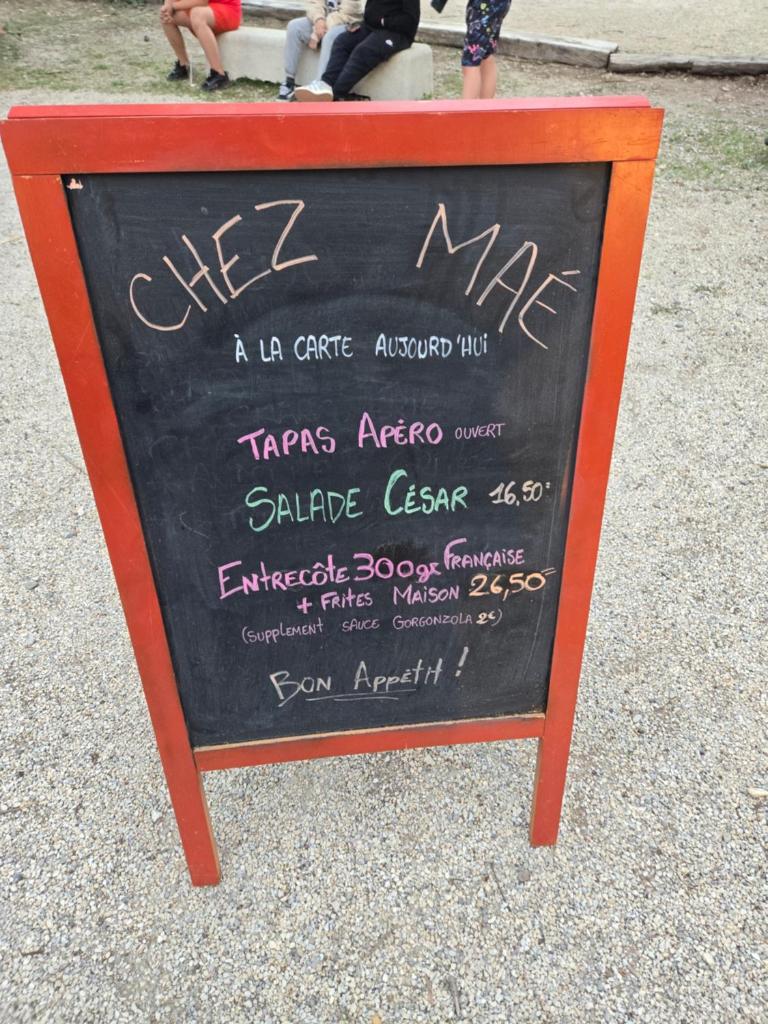 CHEZ MAÉ
À LA CARTE AUJOURD'HUI
TAPAS APÉRO OUVERT
SALADE CÉSAR 16,50
ENTRECÔTE 300gr FRANÇAISE
+ FRITES MAISON 26,50
(SUPPLEMENT SAUCE GORGONZOLA 2€)
BON APPÉTIT !